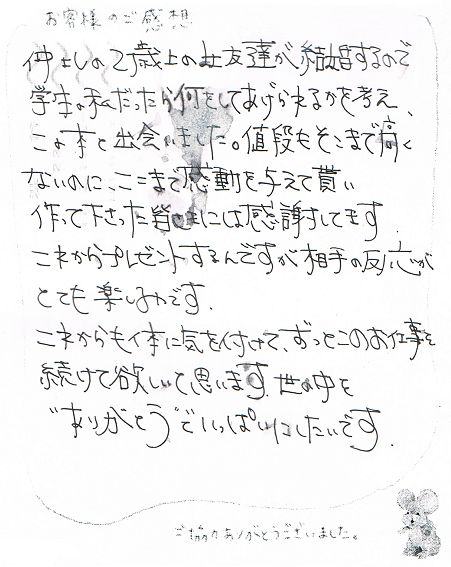 お客様のご感想
仲よしの2歳上の女友達が、結婚するので
学生の私だったら何をしてあげられるかを考え、
この本と出会いました。値段もそこまで高く
ないのに、ここまで感動を与えて貰い
作って下さった皆様には感謝してます.
これからプレゼントするんですが相手の反応が
とても楽しみです.
これからも体に気を付けて、ずっとこのお仕事を
続けて欲しいと思います.世の中を
"ありがとう"でいっぱいにしたいです.
ご協力ありがとうございました。